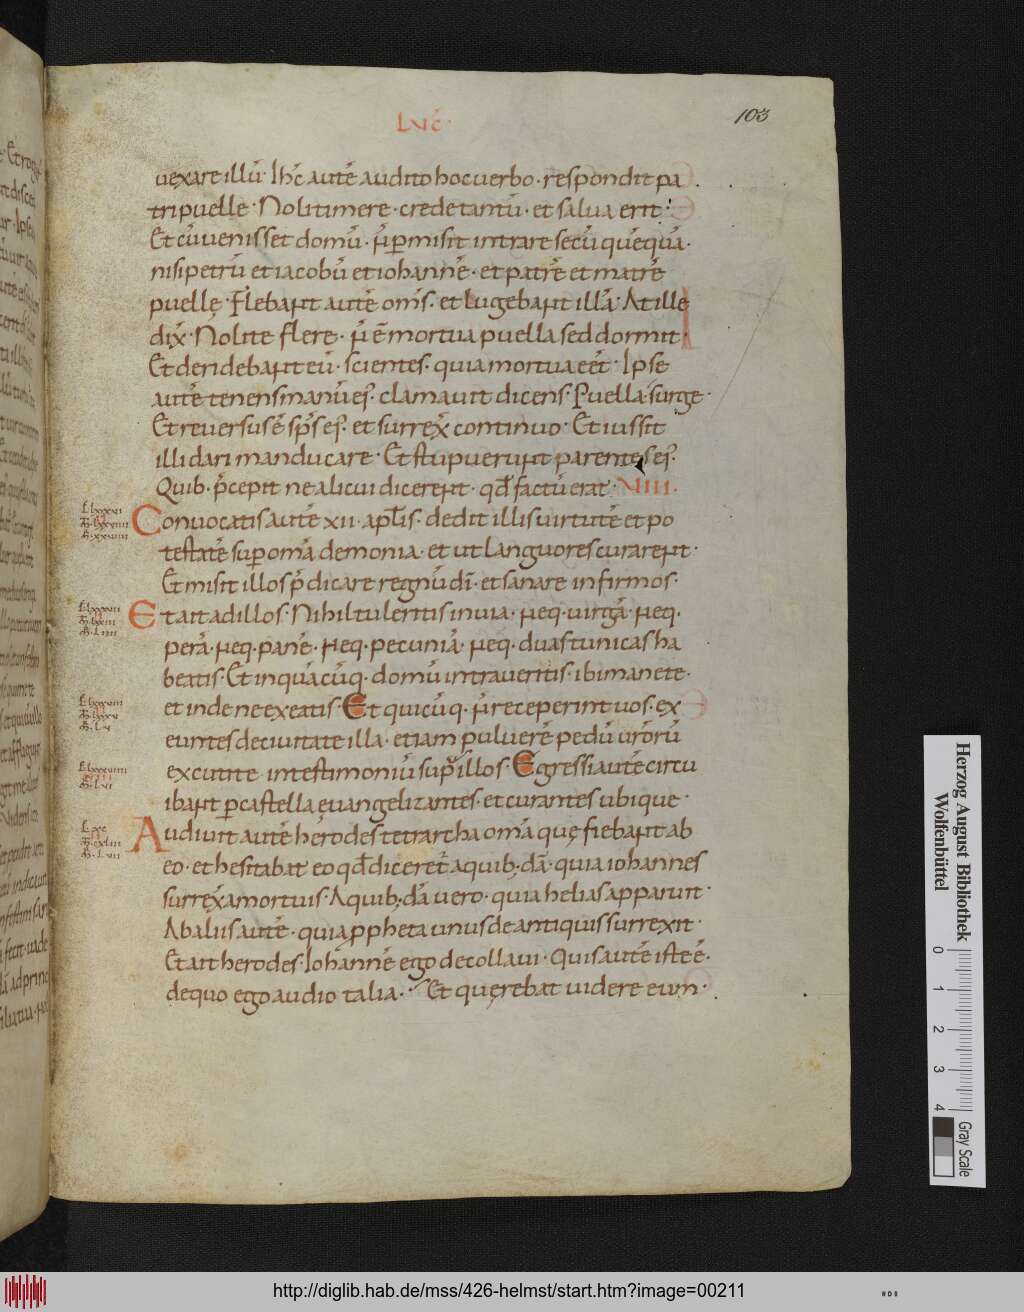 LVC̄·
103
uexare illū· Ihc̄ autē audito hoc uerbo· respondit pa
tri puelle· Noli timere· crede tantū· et salua erit·
Et cū uenisset domū· ñ pmisit intrare secū quēquā·
nisi petrū et iacobū et iohannē· et patrē et matrē
puellę· Flebant autē om̄s· et lugebant illā· At ille
dix̄· Nolite flere· ñ ē mortua puella sed dormit·
Et deridebant eū· scientes· quia mortua eēt· Ipse
autē tenens manū ei᷒· clamauit dicens· Puella surge·
Et reuersus ē sp̄s ei᷒· et surrex̄ continuo· Et iussit
illi dari manducare· Et stupuerunt parentes ei᷒·
Quib· p̄cepit ne alicui dicerent· qđ factū erat· VIIII·
Conuocatis autē xii· apłis· dedit illis uirtutē et po
testatē sup om̄a demonia· et ut languores curarent·
Et misit illos p̄dicare regnū dī· et sanare infirmos·
Et ait ad illos· Nihil tuleritis in uia· neq· uirgā· neq·
perā· neq· panē· neq· pecuniā· neq· duas tunicas ha
beatis· Et in quācūq· domū intraueritis· ibi manete·
et inde ne exeatis· Et quicūq· ñ receperint uos· ex
euntes de ciuitate illa· etiam puluerē pedū urōrū
excutite in testimoniū sup illos· Egressi autē circu
ibant p castella euangelizantes· et curantes ubique·
Audiuit autē herodes tetrarcha om̄a quę fiebant ab
eo· et hesitabat eo qđ diceret̄ a quib; dā· quia iohannes
surrex̄ a mortuis· A quib; dā uero· quia helias apparuit·
Ab aliis autē· quia ppheta unus de antiquis surrexit·
Et ait herodes· Iohannē ego decollaui· Quis autē iste ē·
de quo ego audio talia· Et quęrebat uidere eum·
Herzog August Bibliothek
Wolfenbüttel
0 1 2 3 4
Gray Scale
http://diglib.hab.de/mss/426-helmst/start.htm?image=00211